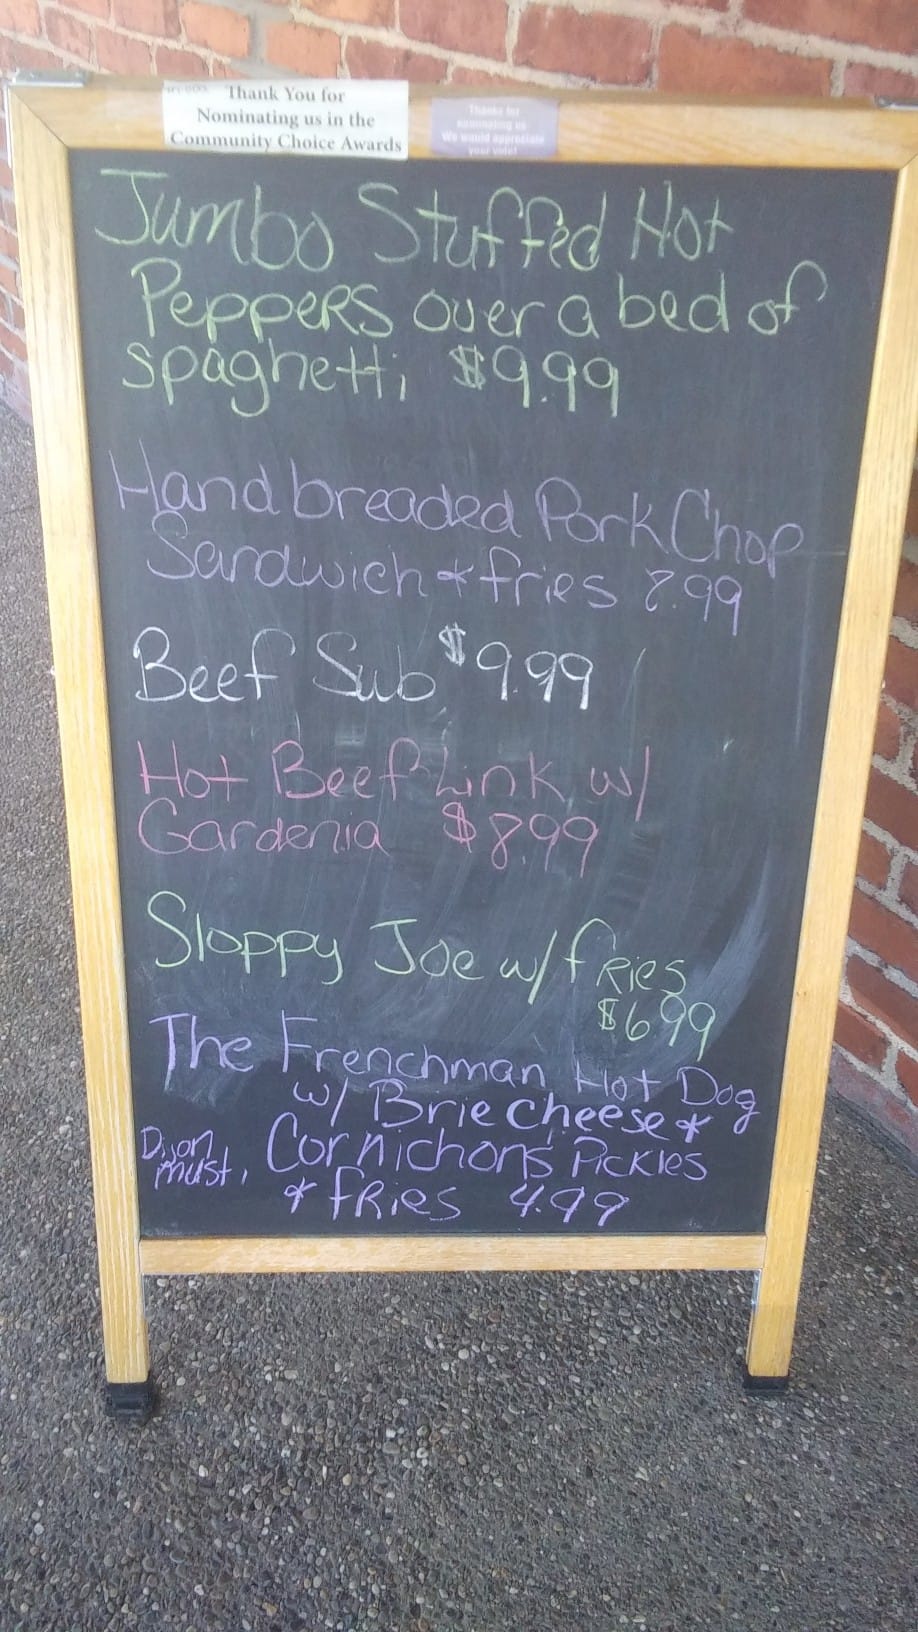 Thank You for
Nominating us in the
Community Choice Awards
Thanks for
nominating us
We would appreciate
your vote!
Jumbo Stuffed Hot
Peppers over a bed of
spaghetti $9.99
Hand breaded Pork Chop
Sandwich * fries 7.99
Beef Sub $9.99
Hot Beef Link w/
Gardenia $8.99
Sloppy Joe w/ fries
$6.99
The Frenchman Hot Dog
w/ Brie cheese *
Dijon must, Cornichons Pickles
* fries 4.99